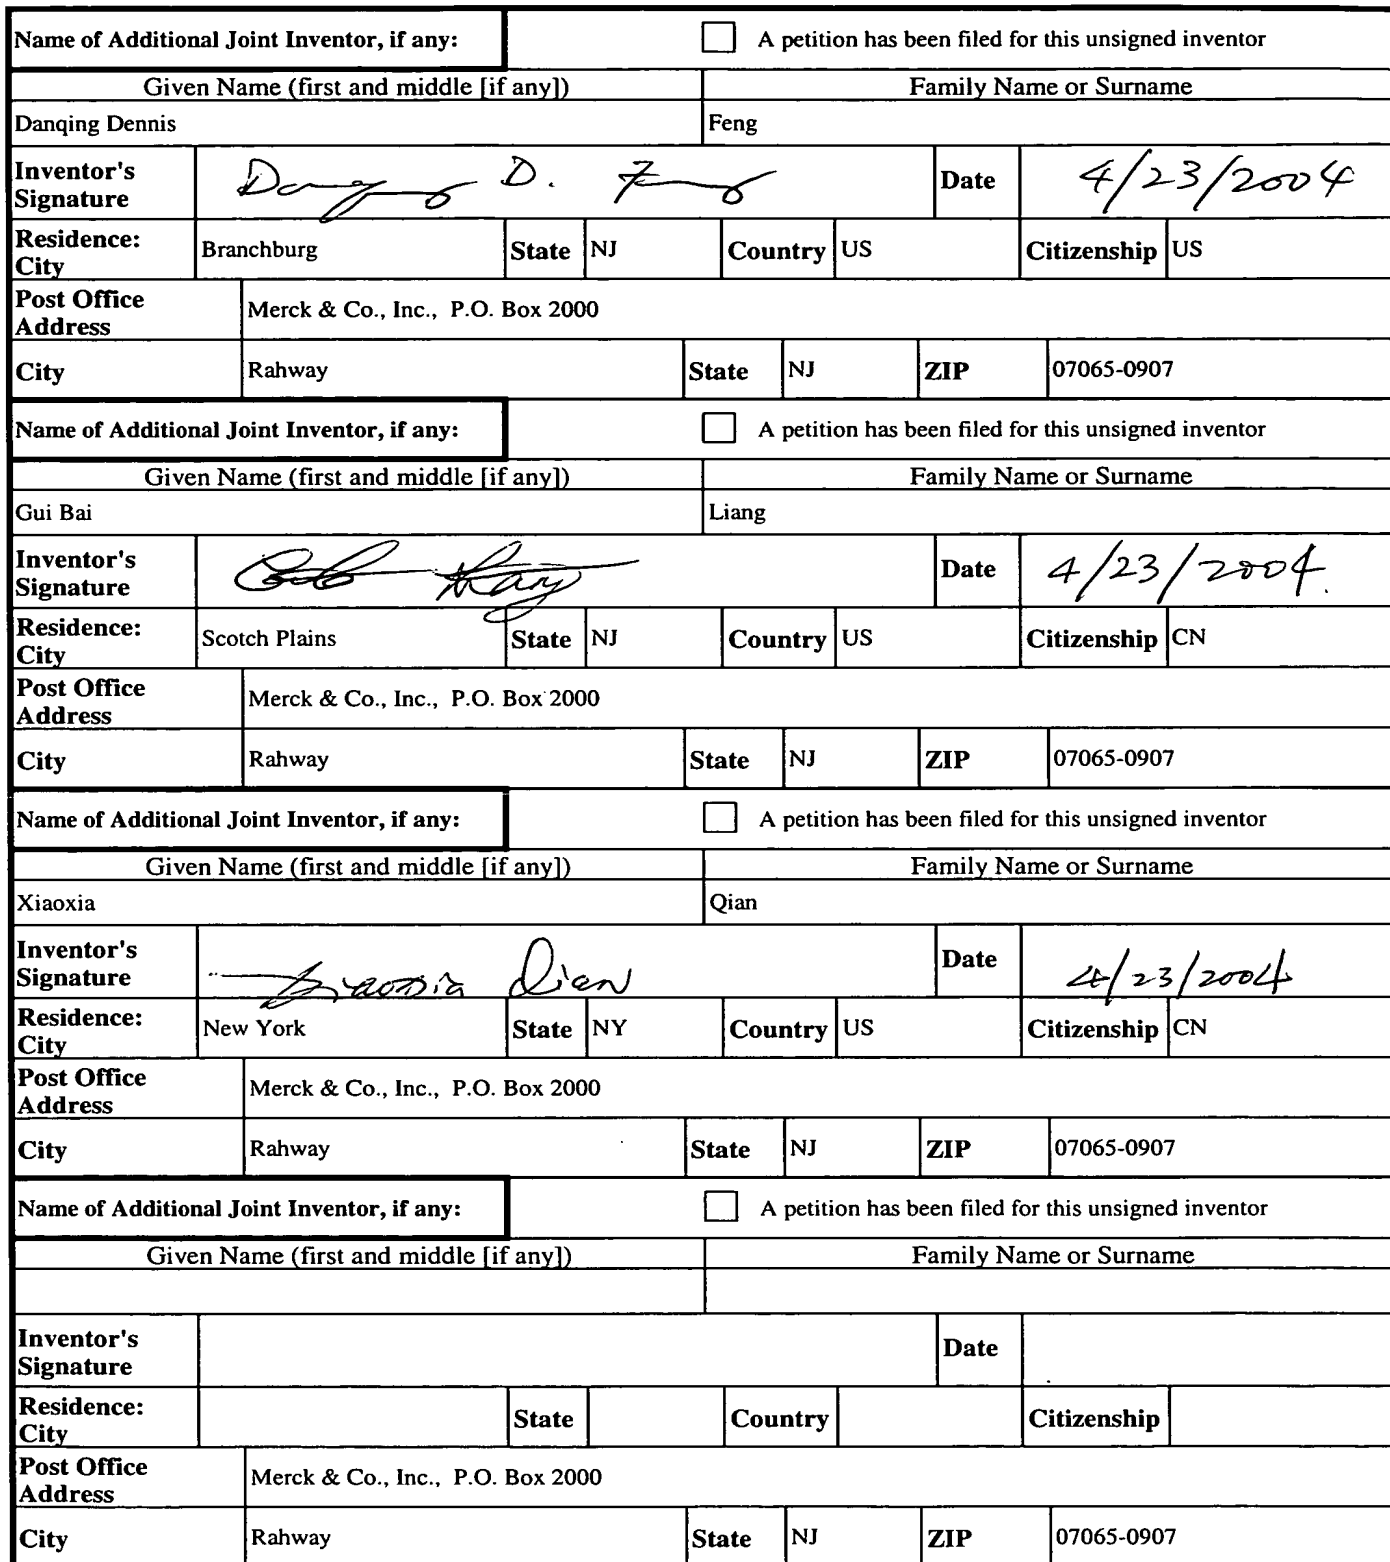 Name of Additional Joint Inventor, if any: A petition has been filed for this unsigned inventor
Given Name (first and middle [if any]) Family Name or Surname
Danqing Dennis Feng
Inventor's Signature Danqing D. Feng Date 4/23/2004
Residence: City Branchburg State NJ Country US Citizenship US
Post Office Address Merck & Co., Inc., P.O. Box 2000
City Rahway State NJ ZIP 07065-0907
Name of Additional Joint Inventor, if any: A petition has been filed for this unsigned inventor
Given Name (first and middle [if any]) Family Name or Surname
Gui Bai Liang
Inventor's Signature Date 4/23/2004.
Residence: City Scotch Plains State NJ Country US Citizenship CN
Post Office Address Merck & Co., Inc., P.O. Box 2000
City Rahway State NJ ZIP 07065-0907
Name of Additional Joint Inventor, if any: A petition has been filed for this unsigned inventor
Given Name (first and middle [if any]) Family Name or Surname
Xiaoxia Qian
Inventor's Signature Xiaoxia Qian Date 4/23/2004
Residence: City New York State NY Country US Citizenship CN
Post Office Address Merck & Co., Inc., P.O. Box 2000
City Rahway State NJ ZIP 07065-0907
Name of Additional Joint Inventor, if any: A petition has been filed for this unsigned inventor
Given Name (first and middle [if any]) Family Name or Surname
Inventor's Signature Date
Residence: City State Country Citizenship
Post Office Address Merck & Co., Inc., P.O. Box 2000
City Rahway State NJ ZIP 07065-0907